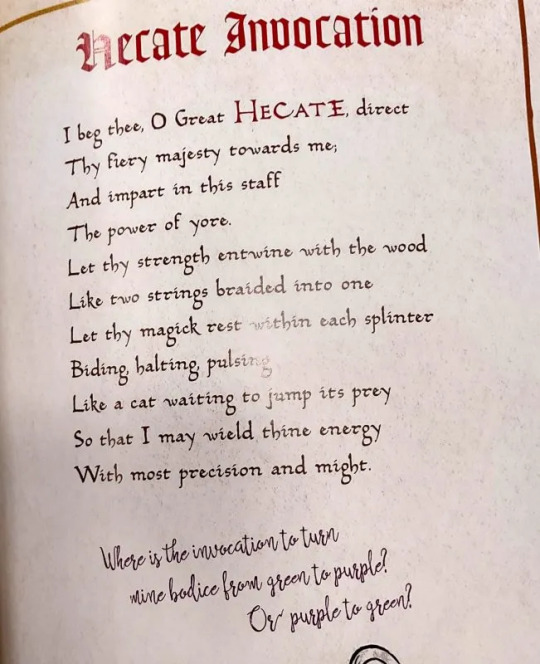 Hecate Invocation
I beg thee, O Great HECATE, direct
Thy fiery majesty towards me;
And impart in this staff
The power of yore.
Let thy strength entwine with the wood
Like two strings braided into one
Let thy magick rest within each splinter
Biding, halting, pulsing
Like a cat waiting to jump its prey
So that I may wield thine energy
With most precision and might.
Where is the invocation to turn
mine bodice from green to purple?
Or purple to green?